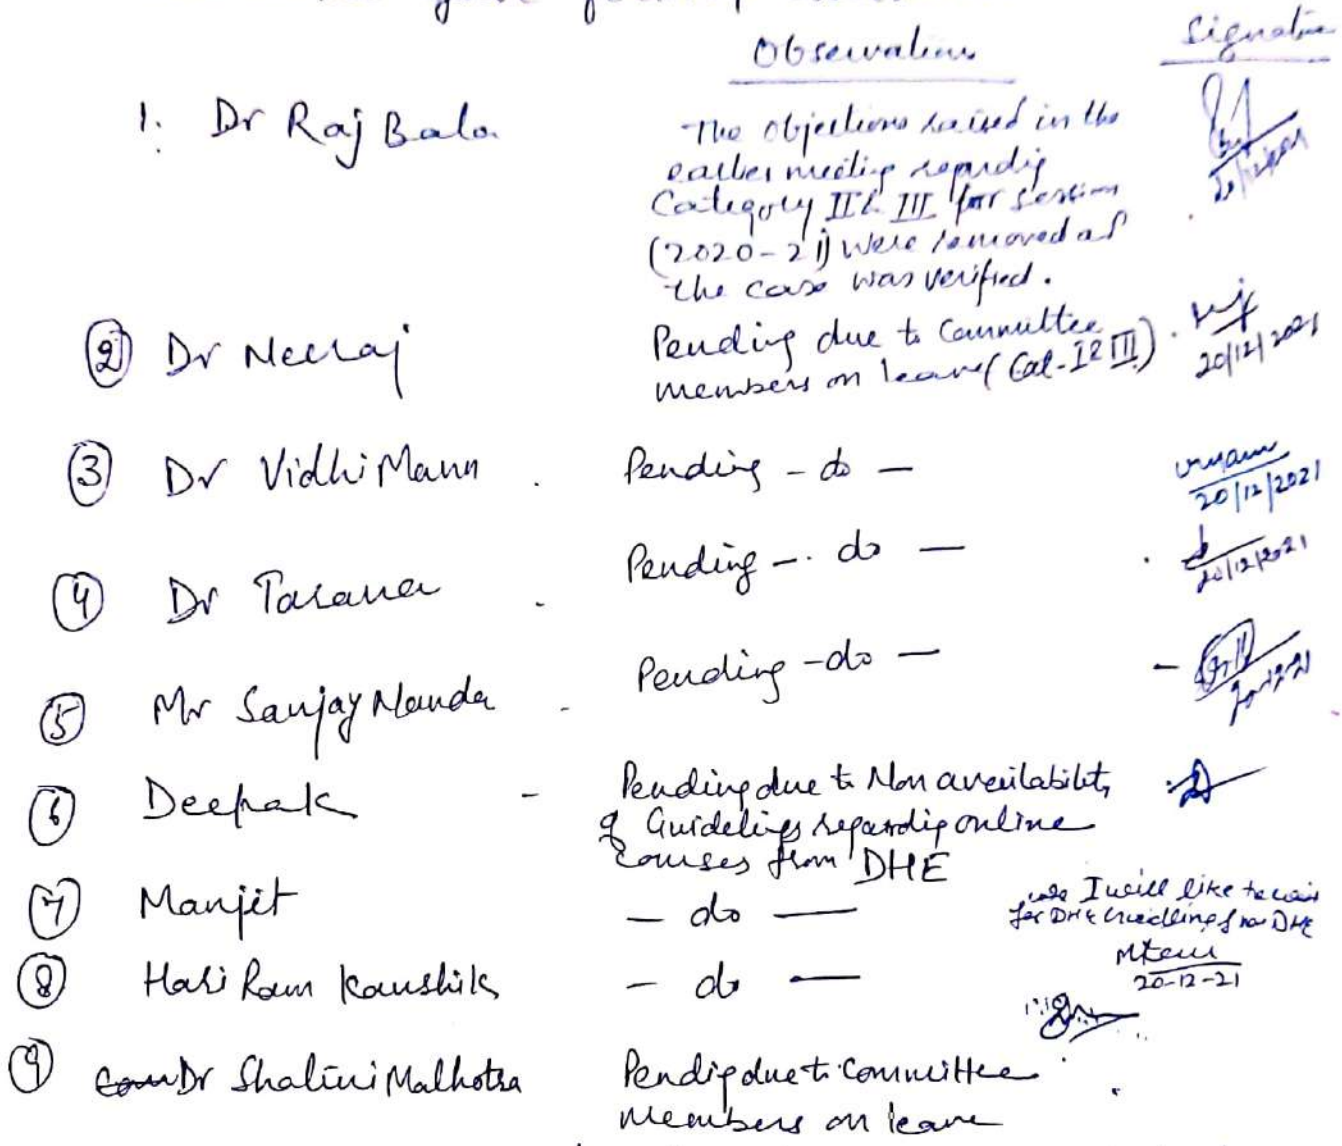 Observations Signature
1. Dr Raj Bala
The objections raised in the
earlier meeting regarding
Category II & III for session
(2020-21) were removed as
the case was verified.
20/12/2021
② Dr Neeraj
Pending due to Committee
members on leave (Cat-I & III)
20/12/2021
③ Dr Vidhi Mann . Pending - do -
20/12/2021
④ Dr Tarana . Pending - do -
20/12/2021
⑤ Mr Sanjay Nanda - Pending - do -
20-12-21
⑥ Deepak - Pending due to Non availability
of Guidelings regardig online
courses from DHE
⑦ Manjit - do -
I will like to wait
for DHE
DHE
20-12-21
⑧ Hari Ram Kaushik - do -
⑨ Dr Shalini Malhotra Pendig due to Committee
Members on leave